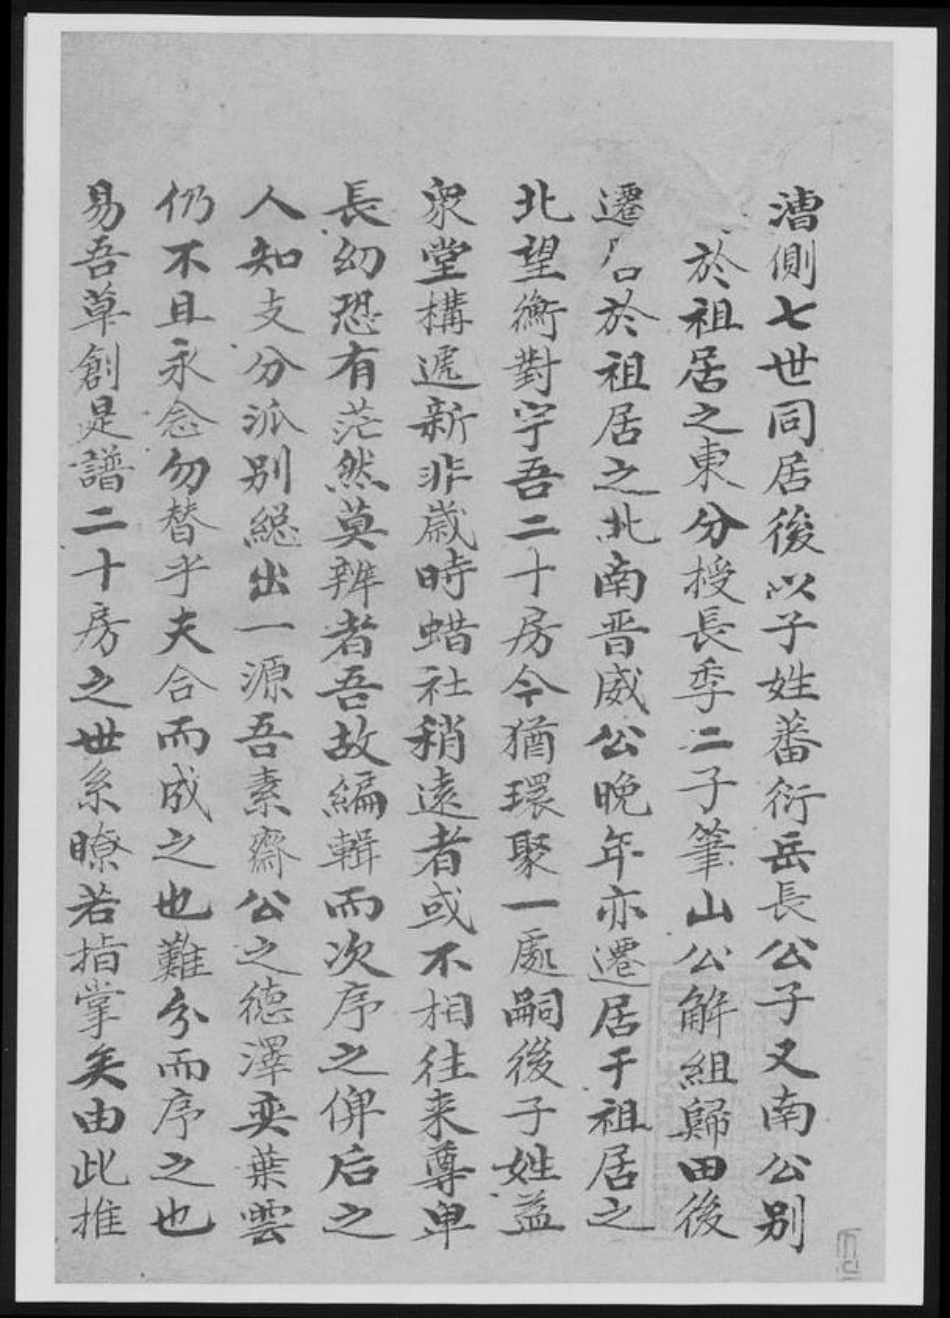 漕側七世同居後以子姓蕃衍岳長公子又南公別
於祖居之東分授長季二子筆山公解組歸田後
遷居於祖居之北南晋威公晚年亦遷居于祖居之
北望衡對宇吾二十房今猶環聚一處嗣後子姓益
衆堂構遞新非歲時蜡社稍遠者或不相往来尊卑
長幼恐有茫然莫辨者吾故編輯而次序之俾后之
人知支分派别総出一源吾素齋公之德澤奕葉雲
仍不且永念勿替乎夫合而成之也難分而序之也
易吾草創是譜二十房之世系瞭若指掌矣由此推